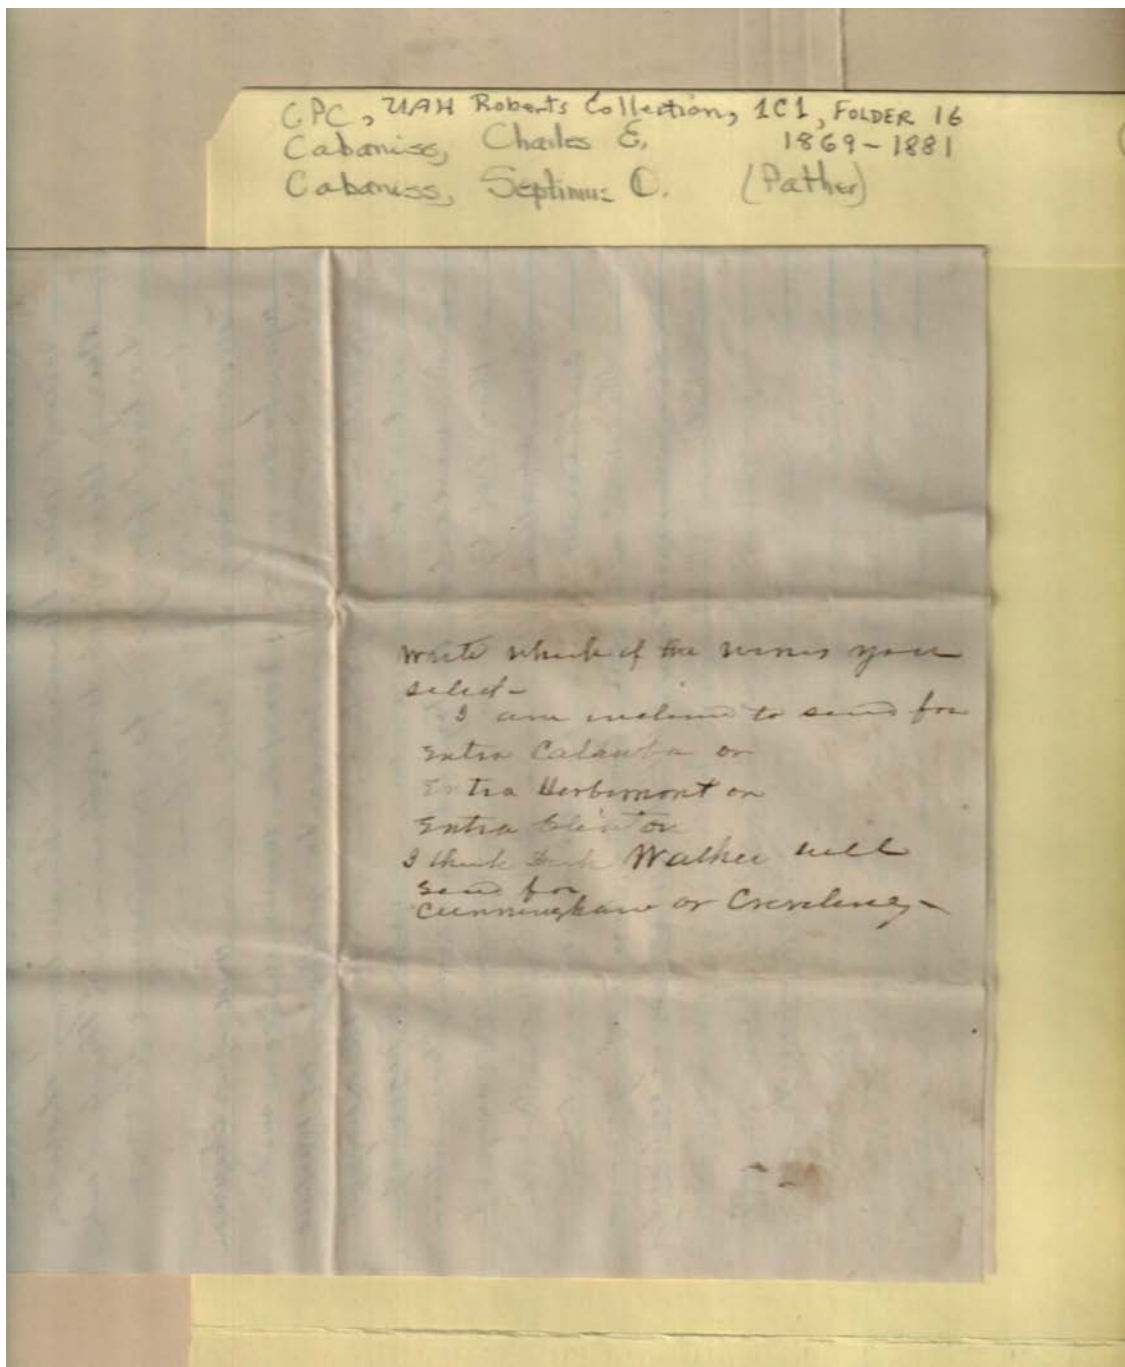 CPC, UAH Roberts Collection, 1C1, FOLDER 16
Cabaniss, Charles E. 1869-1881
Cabaniss, Septimus D. (Father)
Write which of the wines you
select-
I am inclined to send for
Extra Catawba or
Extra Herbemont or
Extra Clinton
I think Walker will
send for
Cunningham or Creveling-